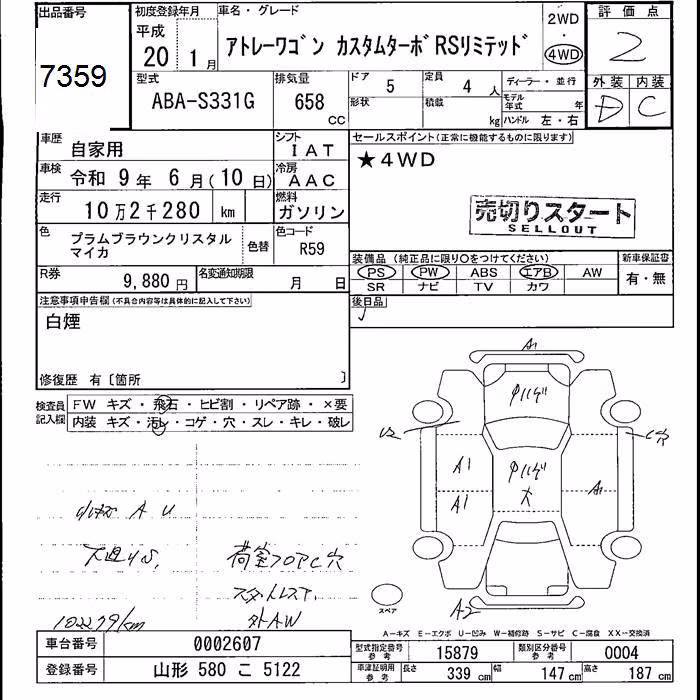 出品番号 初度登録年月 車名・グレード 評価点
7359 平成 20 1月 アトレーワゴン カスタムターボRSリミテッド 2WD 4WD 2
型式 排気量 ドア 5 定員 4人 ディーラー・並行 外装 内装
ABA-S331G 658 CC 形状 積載 kg モデル年式 年 ハンドル 左・右 D C
車歴 自家用 シフト IAT セールスポイント(正常に機能するものに限ります)
車検 令和 9年 6月(10日) 冷房 AAC ★4WD
走行 10万2千280 km 燃料 ガソリン 売切りスタート
SELLOUT
色 プラムブラウンクリスタルマイカ 色替 色コード R59
装備品(純正品に限り〇をつけてください) 新車保証書
PS PW ABS エアB AW 有・無
SR ナビ TV カワ
R券 9,880円 名変通知期限 月 日
注意事項申告欄(不具合内容等は具体的に記入して下さい) 後日品
白煙
修復歴 有〔箇所 〕
検査員記入欄 FW キズ・飛石・ヒビ割・リペア跡・×要
内装 キズ・汚レ・コゲ・穴・スレ・キレ・破レ
A1
U2
C穴
A1
A1
A1
A U
荷室フロアC穴
スタットレスタ.
外AW
102279km
A2
スペア
A-キズ E-エクボ U-凹み W-補修跡 S-サビ C-腐食 XX-交換済
車台番号 0002607 型式指定番号 参考 15879 類別区分番号 参考 0004
登録番号 山形 580 こ 5122 車庫証明用 参考 長さ 339cm 幅 147cm 高さ 187cm